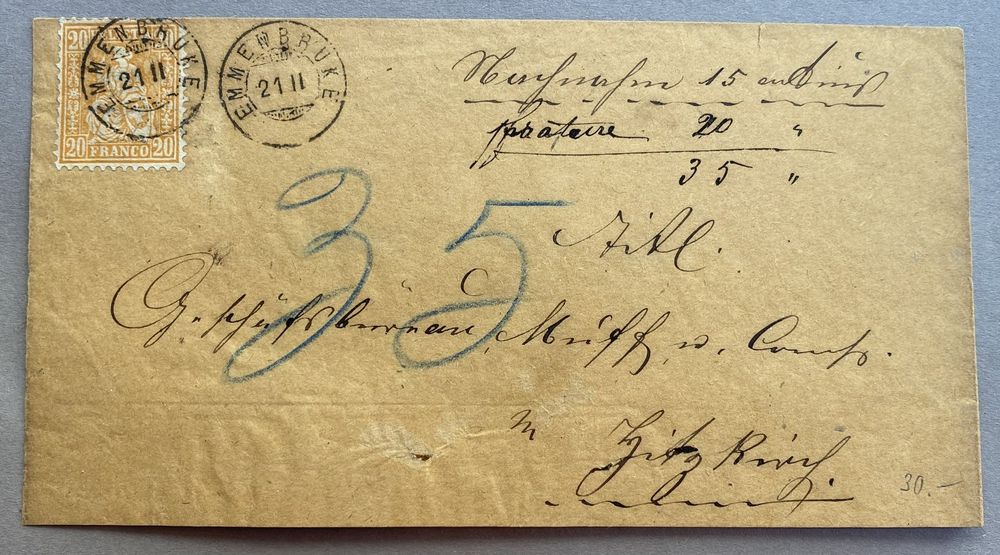 20 HELVETIA 20
20 FRANCO 20
EMMENBRÜKE
21 II
EMMENBRÜKE
21 II
Nachnahm 15 
20 "
35 "
35
Titl.
Geschäftsbüreau Muff u. Comp.
in
Hitzkirch
30.-